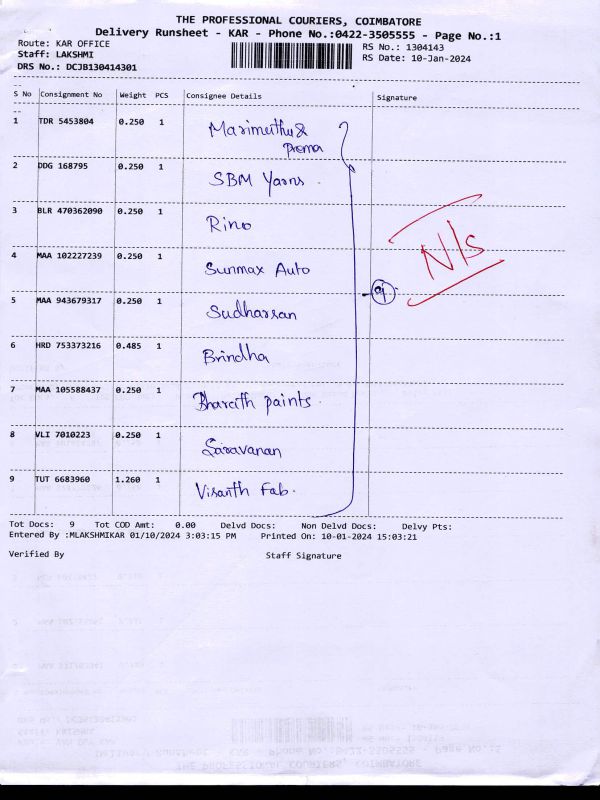 THE PROFESSIONAL COURIERS, COIMBATORE
Delivery Runsheet - KAR - Phone No.:0422-3505555 - Page No.:1
Route: KAR OFFICE
RS No.: 1304143
Staff: LAKSHMI
RS Date: 10-Jan-2024
DRS No.: DCJB130414301
S No Consignment No Weight PCS Consignee Details Signature
1 TDR 5453804 0.250 1 Marimuthu &
Prema
2 DDG 168795 0.250 1 SBM Yarns
3 BLR 470362090 0.250 1 Rino
N/s
4 MAA 102227239 0.250 1 Sunmax Auto
9
5 MAA 943679317 0.250 1 Sudharsan
6 HRD 753373216 0.485 1 Brindha
7 MAA 105588437 0.250 1 Bharath paints.
8 VLI 7010223 0.250 1 Saravanan
9 TUT 6683960 1.260 1 Visanth Fab.
Tot Docs: 9 Tot COD Amt: 0.00 Delvd Docs: Non Delvd Docs: Delvy Pts:
Entered By :MLAKSHMIKAR 01/10/2024 3:03:15 PM Printed On: 10-01-2024 15:03:21
Verified By Staff Signature